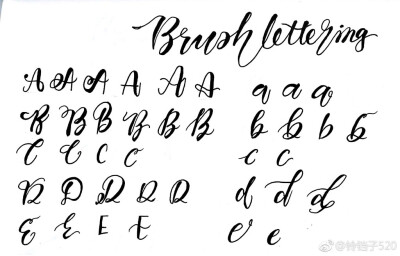 Brush lettering
A A A A A A a a a
B B B B B B b b b b
C C C C c c
D D D D D d d d
E E E E e e
@铃铛子520